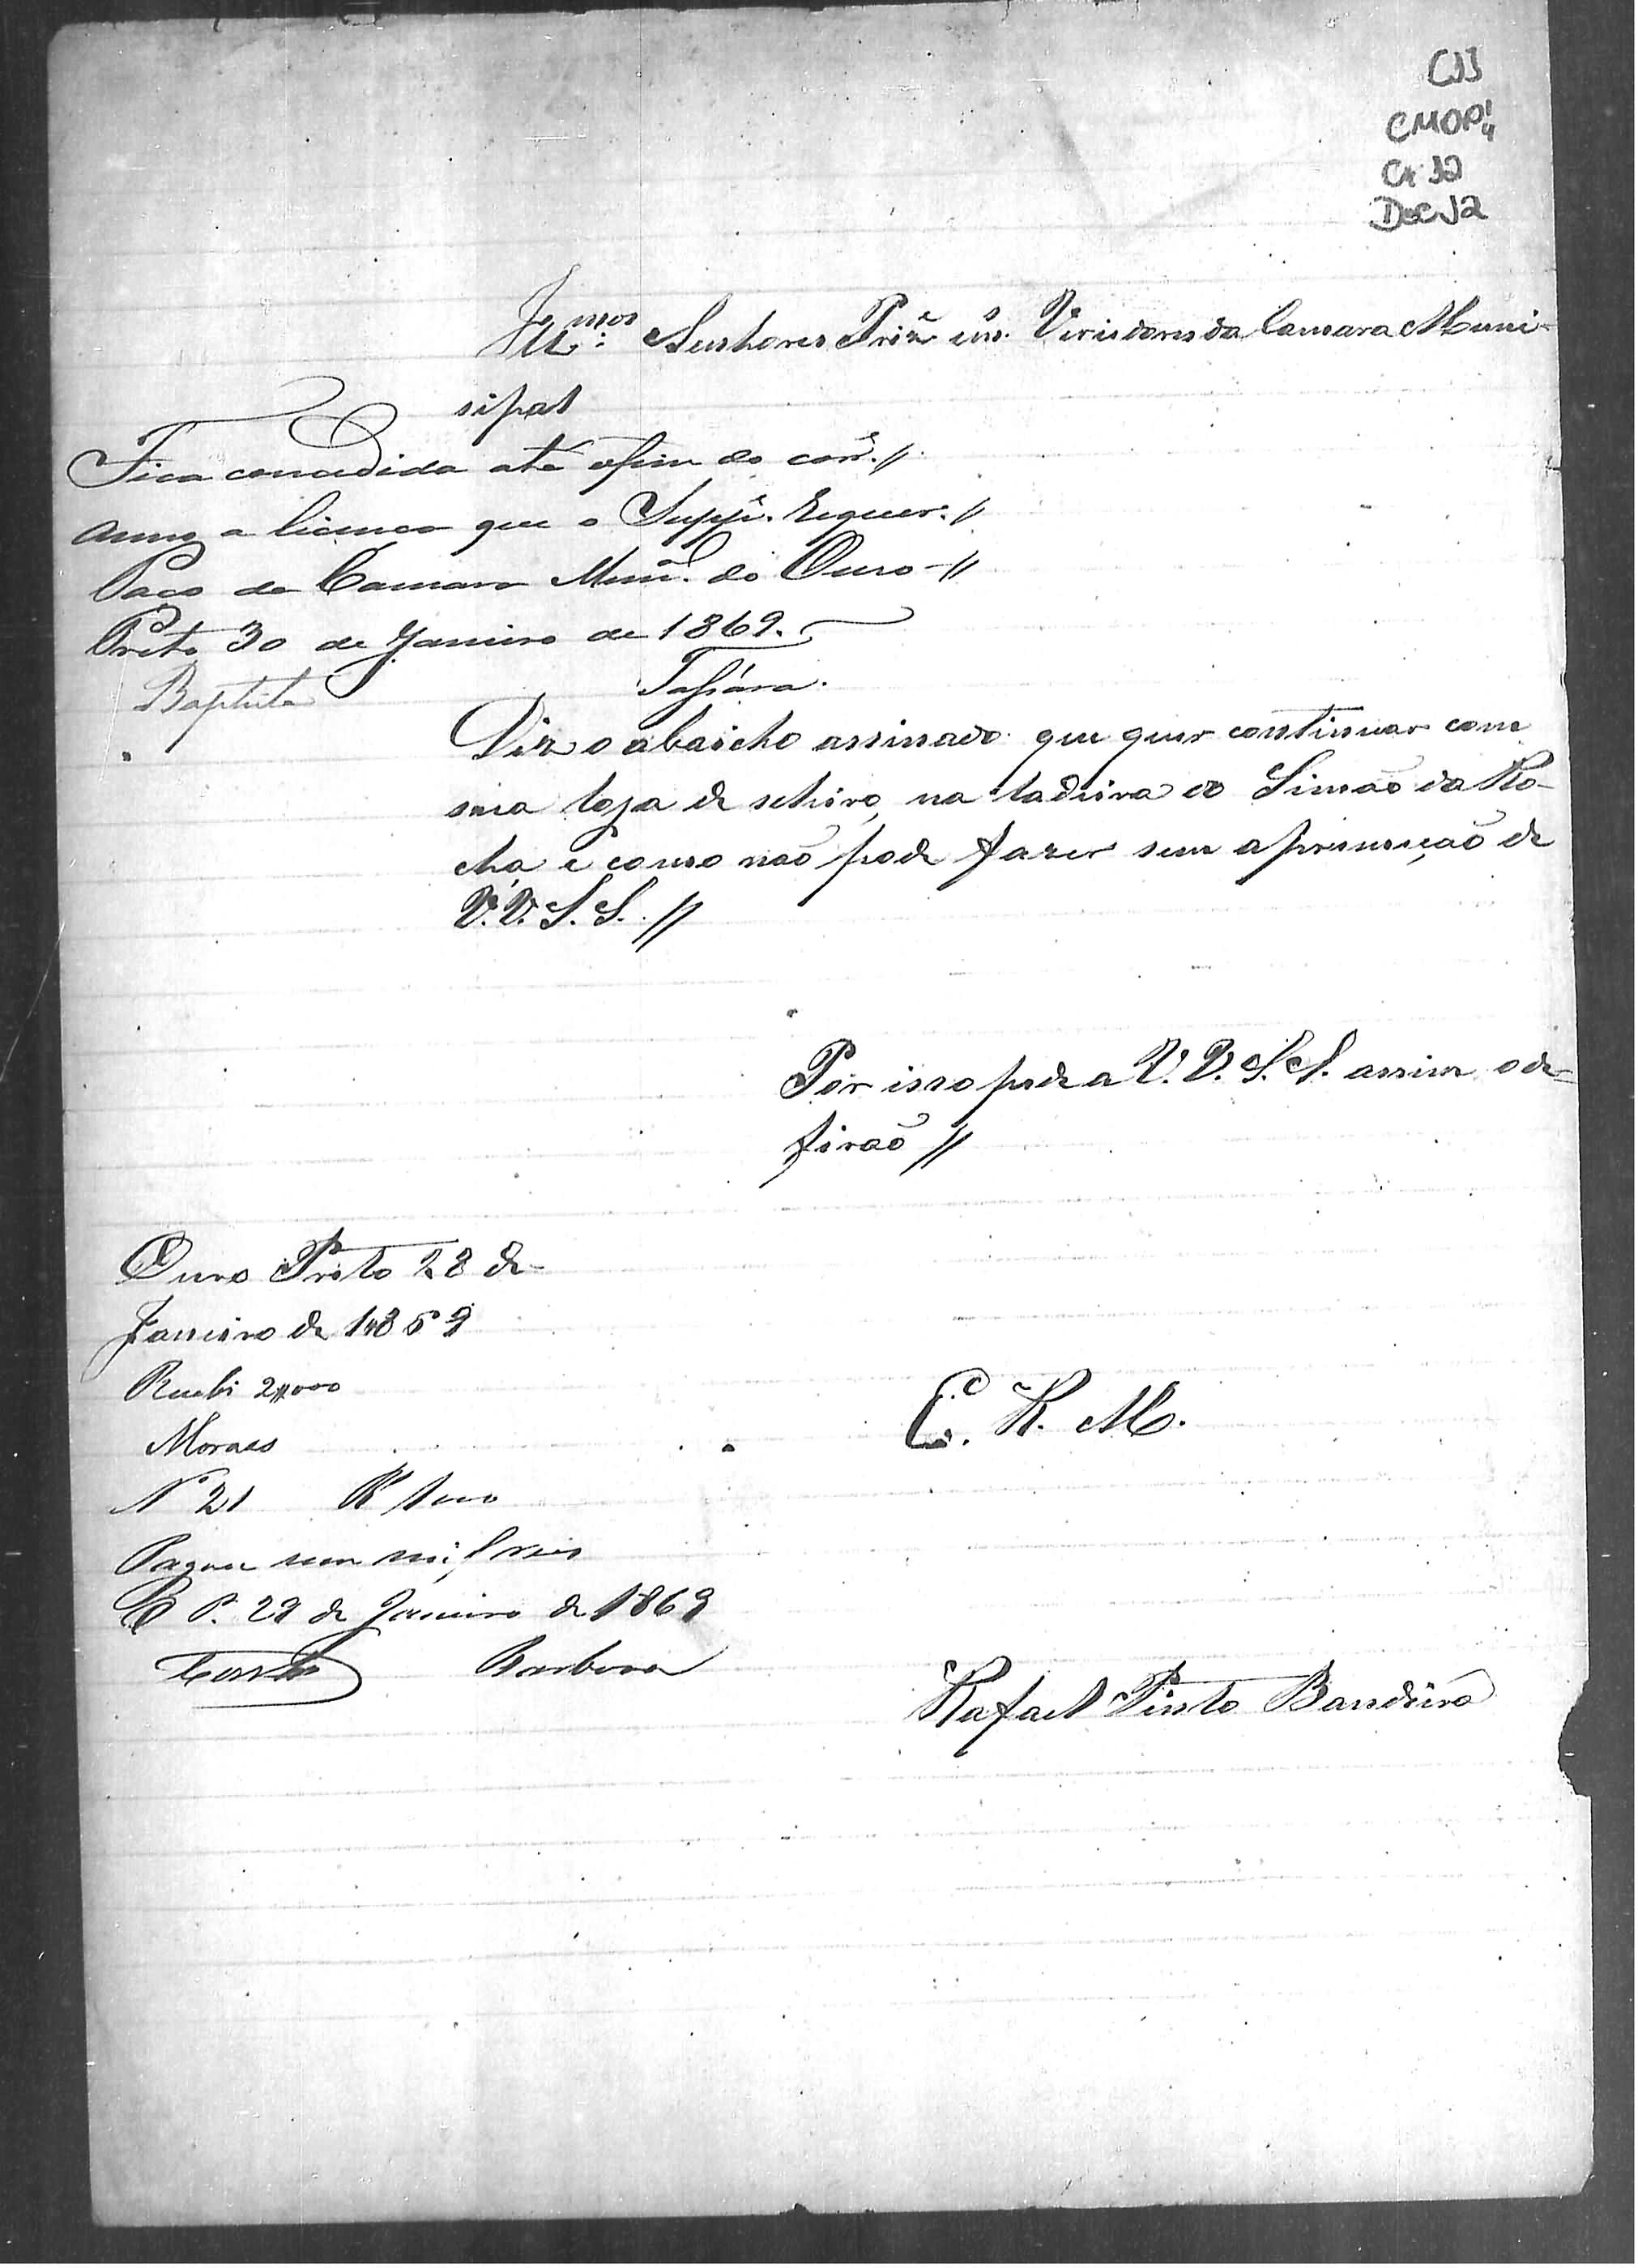 CMOP
Cx 32
Doc 12
Ill.mos Senhores Prize e Veriadores da Camara Muni-
sipal
Fica concedida até o fim do corr.e //
anno a licença que o Supp.e requer. //
Paço da Camara Mun. do Ouro- //
Preto 30 de Janeiro de 1869.
Baptista
Diz o abaicho assinado que quer continuar com
sua loja de seleiro, na ladeira do Simão da Ro-
cha, e como não pode fazer sem a promoção de
V. V. S. S. //
Por isso pede a V. V. S. S. assim o de-
firão //
Ouro Preto 28 de
Janeiro de 1869
Recebi 2#000
Moraes
E. R. M.
N.o 21
Pagou um mil reis
O P. 29 de Janeiro de 1869
Barbosa
Rafael Pinto Bandeira